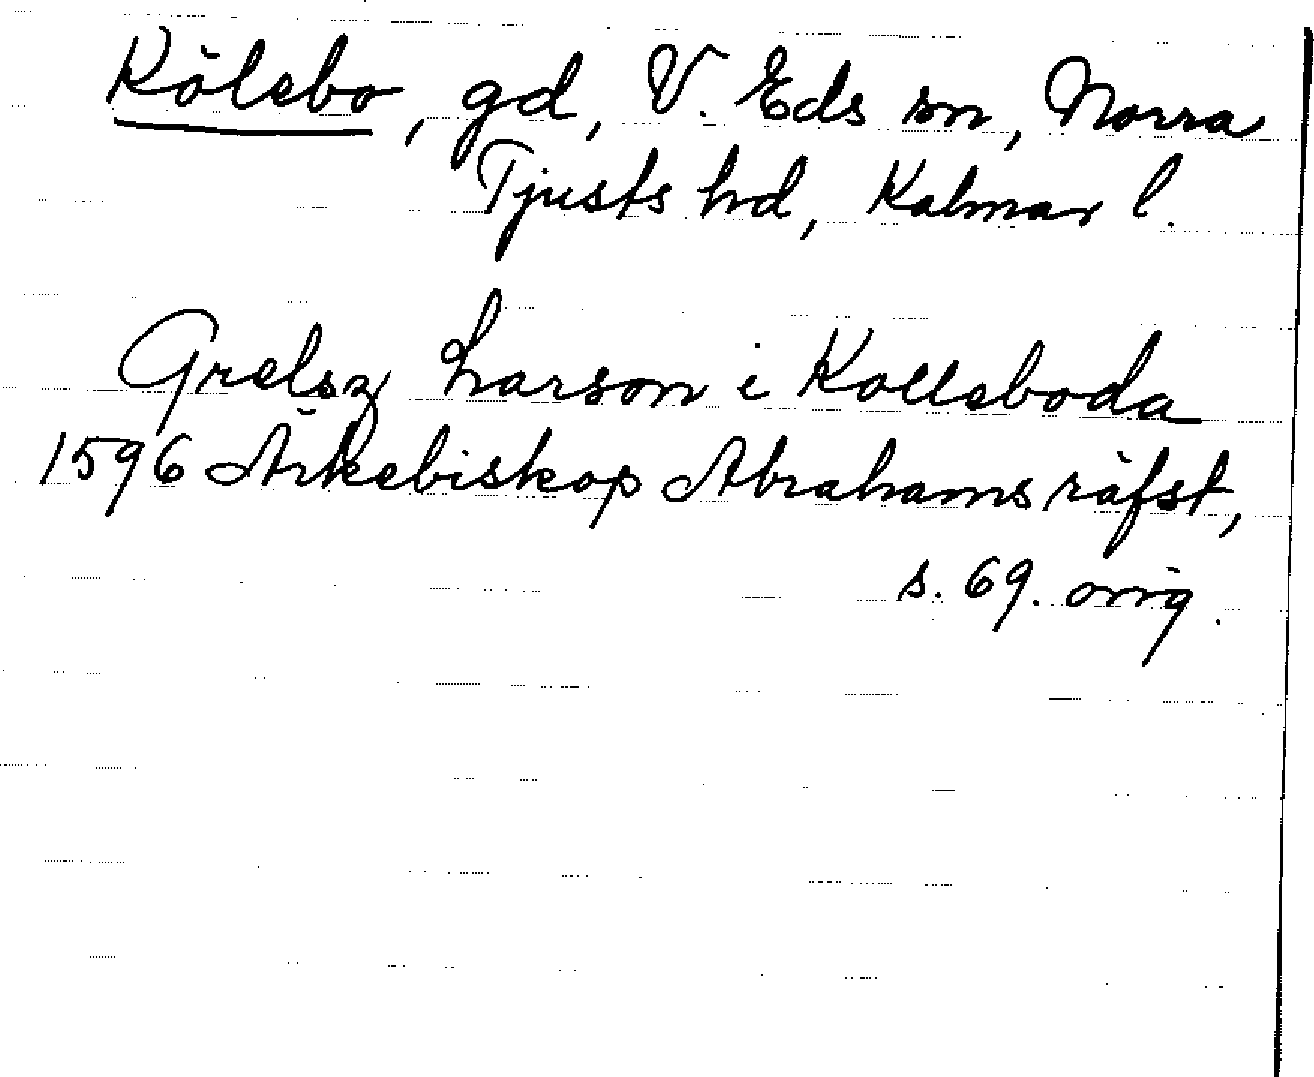 Kölebo, gd, V. Eds sn, Norra
Tjusts hd, Kalmar l.
Grelsz Larson i Kolleboda
1596 Ärkebiskop Abrahams räfst,
s. 69. orig.